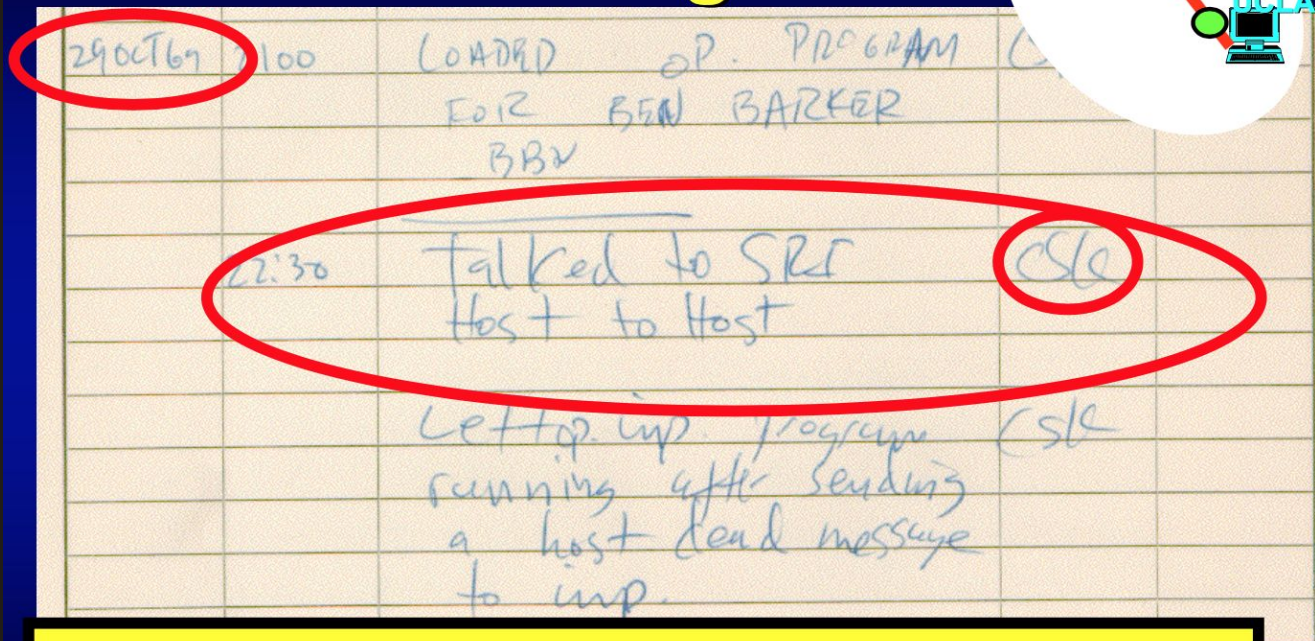 UCLA
29OCT69 2100 LOADED OP. PROGRAM
FOR BEN BARKER
BBN
22:30 Talked to SRI CSK
Host to Host
Left op. imp. program CSK
running after sending
a host dead message
to imp.